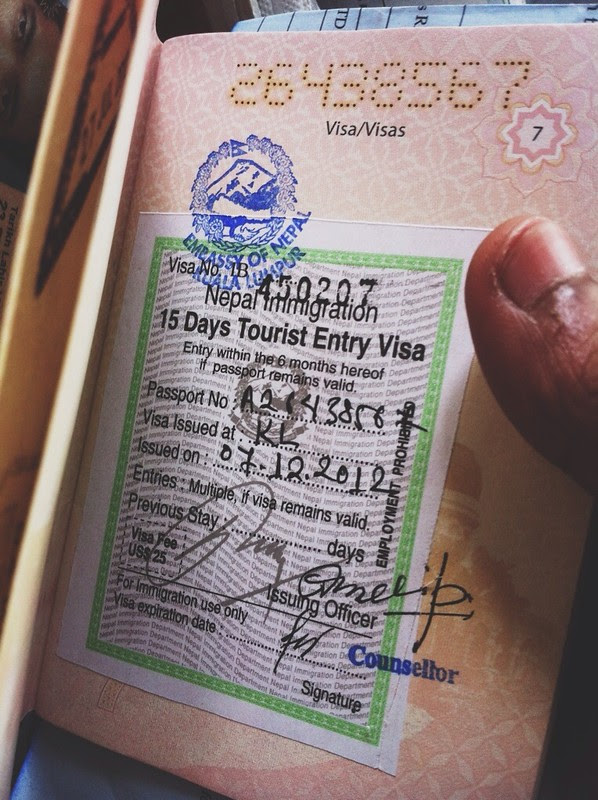 26438567
Visa/Visas
7
EMBASSY OF NEPAL
KUALA LUMPUR
Visa No. 1B 450207
Nepal Immigration
15 Days Tourist Entry Visa
Entry within the 6 months hereof
if passport remains valid.
Passport No A26438567
Visa Issued at KL
Issued on : 07.12.2012
Entries : Multiple, if visa remains valid
Previous Stay ............ days
Visa Fee :
US$ 25
Issuing Officer
For Immigration use only
Visa expiration date :
for
Counsellor
Signature
EMPLOYMENT PROHIBITED